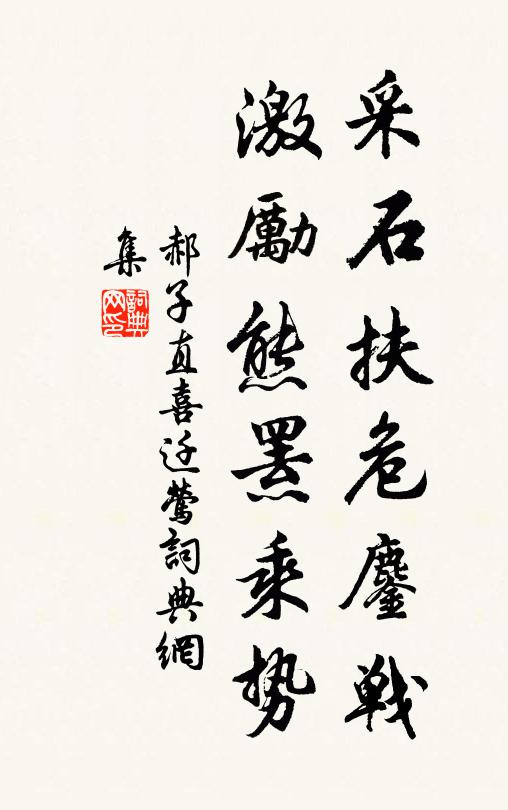 采石扶危鏖戦
激勵熊羆乘势
郝子直喜迁莺詞典網
集
詞典网印